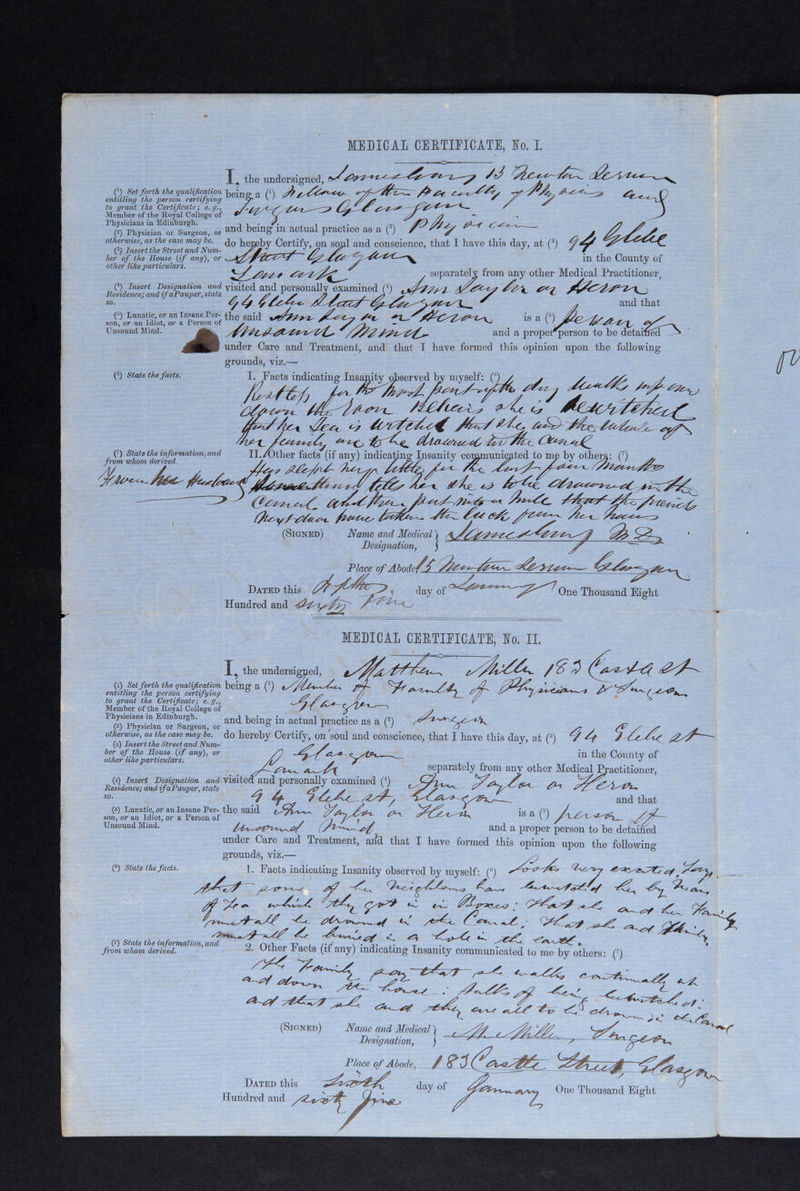 MEDICAL CERTIFICATE, No. I.
I, the undersigned, 13
(1) Set forth the qualification
entitling the person certifying
to grant the Certificate; e. g.,
Member of the Royal College of
Physicians in Edinburgh.
being a (1) Fellow of the Faculty of Physicians and
Surgeons Glasgow
(2) Physician or Surgeon, or
otherwise, as the case may be.
and being in actual practice as a (2) Physician
(3) Insert the Street and Num-
ber of the House (if any), or
other like particulars.
do hereby Certify, on soul and conscience, that I have this day, at (3) 94 Glebe
Street Glasgow in the County of
Lanark separately from any other Medical Practitioner,
(4) Insert Designation and
Residence; and if a Pauper, state
so.
visited and personally examined (4) Ann Taylor or Heron
94 Glebe Street Glasgow and that
(5) Lunatic, or an Insane Per-
son, or an Idiot, or a Person of
Unsound Mind.
the said Ann Taylor or Heron is a (5) Person of
Unsound Mind and a proper person to be detained
under Care and Treatment, and that I have formed this opinion upon the following
grounds, viz.—
(6) State the facts.
I. Facts indicating Insanity observed by myself: (6)
Restless for the most part of the day walks up and
down the Room believes she is bewitched
that her Tea is witched that she and the whole of
her family are to be drowned in the Canal
(7) State the information, and
from whom derived.
II. Other facts (if any) indicating Insanity communicated to me by others: (7)
From her Husband
Has slept very little for the last four months
tells her she is to be drowned in the
Canal and then put into a hole that the friends
next door have taken the luck from her house
(SIGNED) Name and Medical Designation, M.D.
Place of Abode, 15 Glasgow
DATED this day of January One Thousand Eight
Hundred and sixty five
MEDICAL CERTIFICATE, No. II.
I, the undersigned, Matthew Miller 183 Castle St
(1) Set forth the qualification
entitling the person certifying
to grant the Certificate; e. g.,
Member of the Royal College of
Physicians in Edinburgh.
being a (1) Member of Faculty of Physicians & Surgeons
Glasgow
(2) Physician or Surgeon, or
otherwise, as the case may be.
and being in actual practice as a (2) Surgeon
(3) Insert the Street and Num-
ber of the House (if any), or
other like particulars.
do hereby Certify, on soul and conscience, that I have this day, at (3) 94 Glebe St
Glasgow in the County of
Lanark separately from any other Medical Practitioner,
(4) Insert Designation and
Residence; and if a Pauper, state
so.
visited and personally examined (4) Ann Taylor or Heron
94 Glebe St, Glasgow and that
(5) Lunatic, or an Insane Per-
son, or an Idiot, or a Person of
Unsound Mind.
the said Ann Taylor or Heron is a (5) person of
Unsound Mind and a proper person to be detained
under Care and Treatment, and that I have formed this opinion upon the following
grounds, viz.—
(6) State the facts.
1. Facts indicating Insanity observed by myself: (6) Looks very excited, Says
that some of her Neighbours have bewitched her by Means
of Tea which they got in in Boxes: That she and her Family
must all be drowned in the Canal; That she and Family
must all be buried in a hole in the earth.
(7) State the information, and
from whom derived.
2. Other Facts (if any) indicating Insanity communicated to me by others: (7)
The Family say that she walks continually up
and down the house: talks of being bewitched:
and that she and they are all to be drowned in the Canal
(SIGNED) Name and Medical Designation, M. Miller, Surgeon
Place of Abode, 183 Castle Street, Glasgow
DATED this Sixth day of January One Thousand Eight
Hundred and sixty five